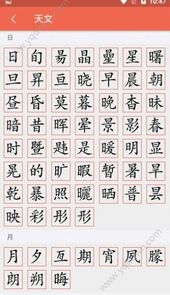 10:47
天文
日
日 旬 昜 晶 星 曙
旦 昇 昱 晚 早 晨 朝
昏 莫 暮 晚 杳 昧
暗 昔 暉 暈 景 影 春
时 是 暖 明 显
晃 的 旷 暇 暂 暑 旱
乾 暴 照 曬 晒 普 昙
映 彩 彤 形
月
月 夕 互 期 宵 夙 朦
朗 朔 晦